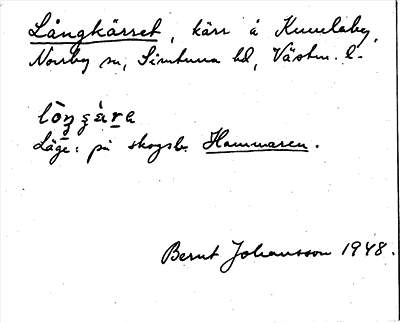 Långkärret, kärr å Kumlaby,
Norrby sn, Simtuna hd, Västm. l.
lòŋʒàra
Läge: på skogsb. Hammaren.
Bernt Johansson 1948.